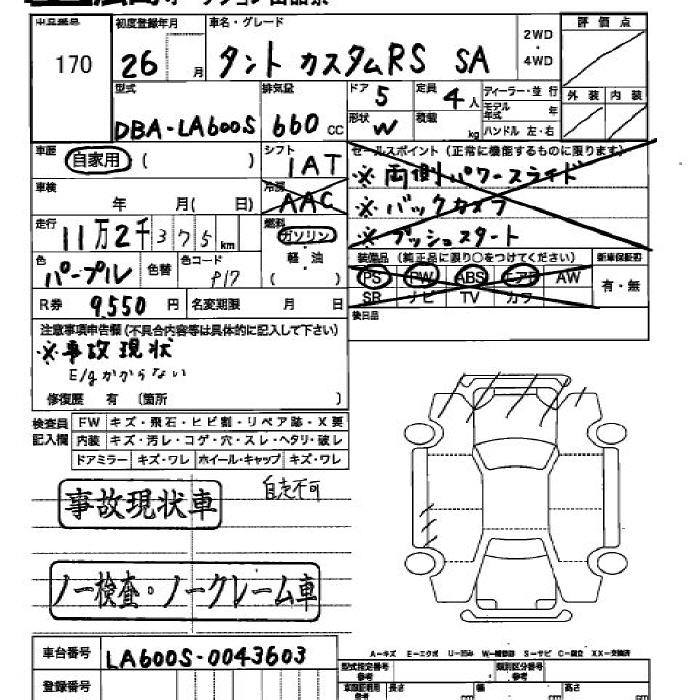 出品番号 初度登録年月 車名・グレード 評価点
170 26 月 タント カスタムRS SA 2WD・4WD
型式 排気量 ドア 5 定員 4人 ディーラー・並行 外装 内装
DBA-LA600S 660 cc 形状 W 積載 kg モデル年式 年
ハンドル 左・右
車歴 自家用 ( ) シフト 1AT セールスポイント(正常に機能するものに限ります)
※両側パワースライド
車検 年 月( 日) 冷房 AAC ※バックカメラ
走行 11万2千375km 燃料 ガソリン ※プッシュスタート
軽・油
色 パープル 色替 色コード P17 ( ) 装備品 (純正品に限り○をつけてください) 新車保証書
PS PW ABS エアB AW 有・無
R券 9,550 円 名変期限 月 日 SR ナビ TV カワ
後日品
注意事項申告欄(不具合内容等は具体的に記入して下さい)
※事故現状
E/gかからない
修復歴 有 (箇所 )
検査員記入欄 FW キズ・飛石・ヒビ割・リペア跡・X要
内装 キズ・汚レ・コゲ・穴・スレ・ヘタリ・破レ
ドアミラー キズ・ワレ ホイール・キャップ キズ・ワレ
自走不可
事故現状車
ノー検査・ノークレーム車
A-キズ E-エクボ U-凹み W-補修跡 S-サビ C-腐立 XX-交換済
車台番号 LA600S-0043603 型式指定番号 参考 類別区分番号 参考
登録番号 長さ cm 幅 cm 高さ cm